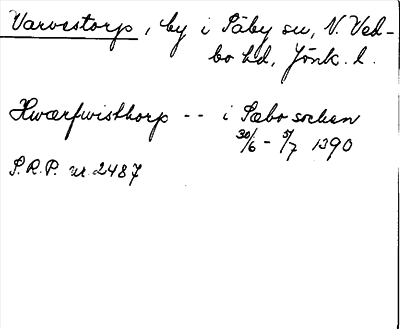 Varvestorp, by i Säby sn, N. Ved-
bo hd, Jönk. l.
Hwærfwisthorp -- i Sæbo sochen
30/6 - 5/7 1390
S.R.P. nr 2487